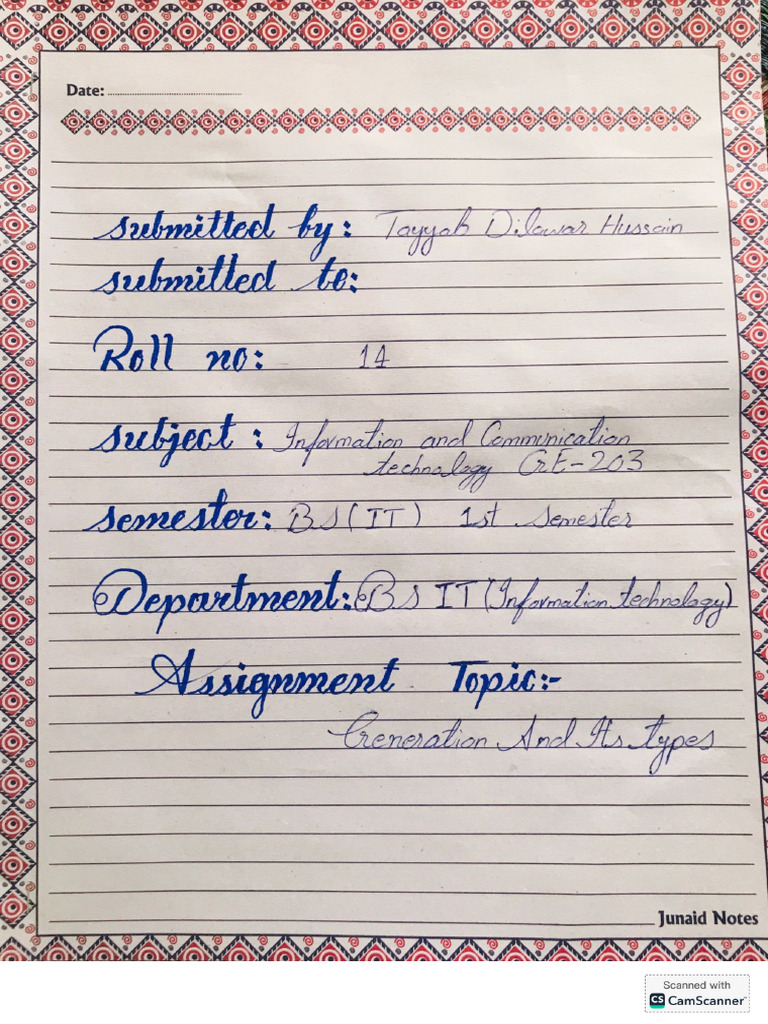 Date:
submitted by: Tayyab Dilawar Hussain
submitted to:
Roll no: 14
subject: Information and Communication
technology GE-203
semester: BS(IT) 1st Semester
Department: BS IT (Information technology)
Assignment Topic:-
Generation And Its types
Junaid Notes
Scanned with
CS CamScanner